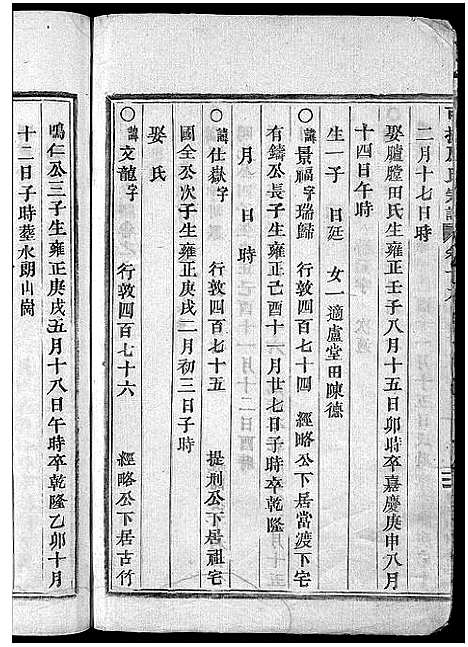 二月十七日時
娶臚膛田氏生雍正壬子八月十五日卯時卒嘉慶庚申八月
十四日午時
生一子 日廷 女一適盧堂田陳德
○諱景福字瑞歸 行敦四百七十四 經略公下居當渡下宅
有鑄公長子生雍正己酉十一月廿七日子時卒乾隆
月 日 時
○諱仕嶽字 行敦四百七十五 提刑公下居祖宅
國全公次子生雍正庚戌二月初三日子時
娶 氏
○諱文龍字 行敦四百七十六 經略公下居古竹
鳴仁公三子生雍正庚戌五月十八日午時卒乾隆乙卯十月
十二日子時葬水閣山崗